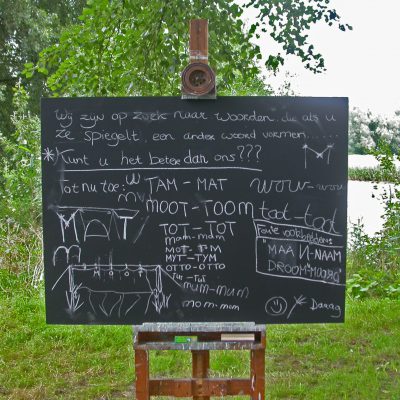 Wij zijn op zoek naar woorden die als u
ze spiegelt, een ander woord vormen......
* Kunt u het beter dan ons???
Tot nu toe:
TAM - MAT
WOW - WOW
MOOT - TOOM
toot - toot
TOT - TOT
mam - mam
MOT - TOM
MYT - TYM
OTTO - OTTO
Tut - Tut
mum - mum
mom - mom
Foute voorbeelden:
"MAAN - NAAM
DROOM - MOORD"
Daaag